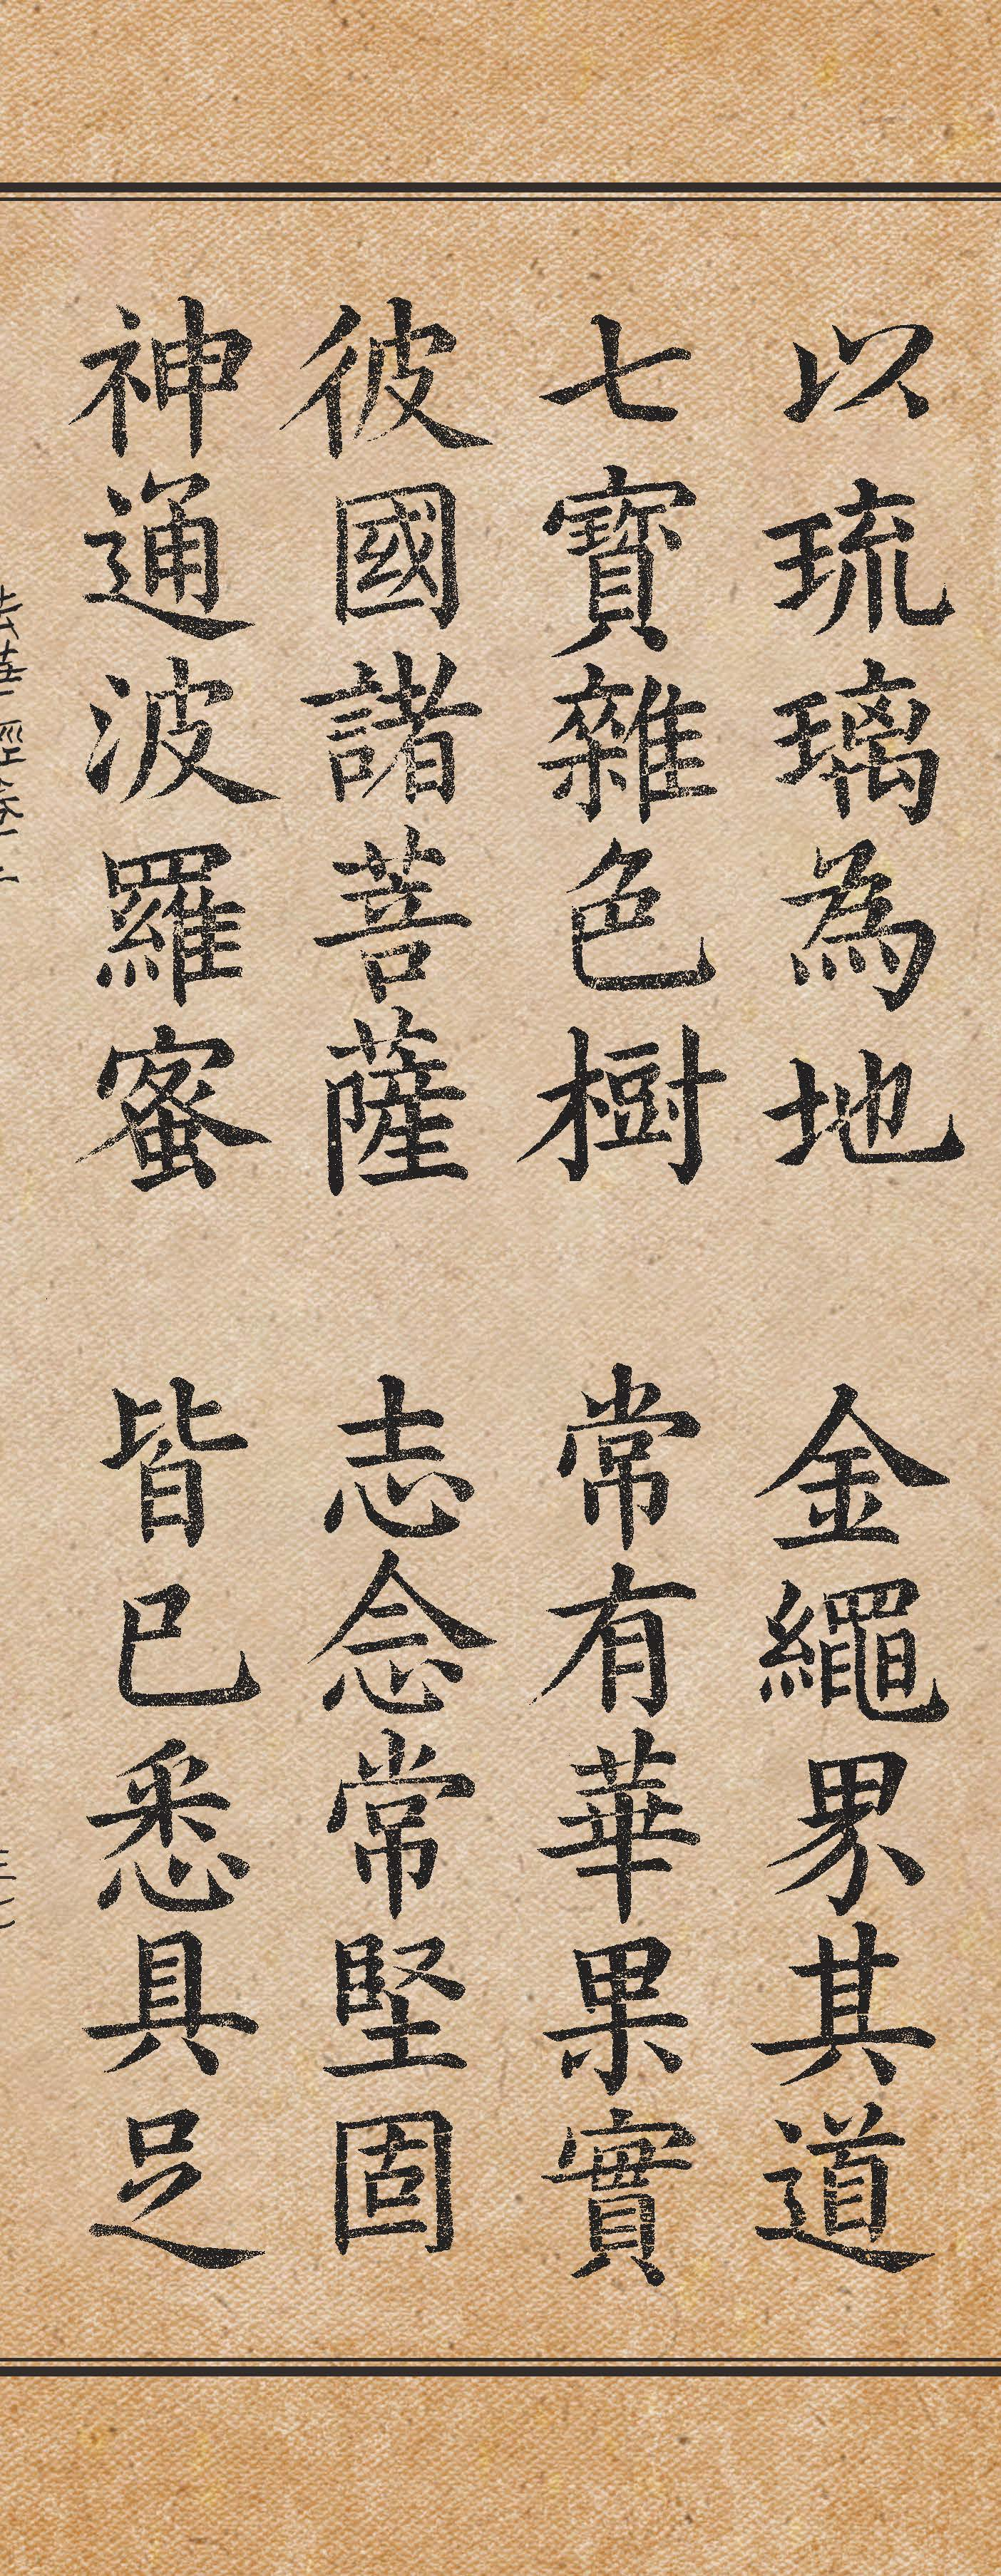 以琉璃為地　金繩界其道
七寶雜色樹　常有華果實
彼國諸菩薩　志念常堅固
神通波羅蜜　皆已悉具足